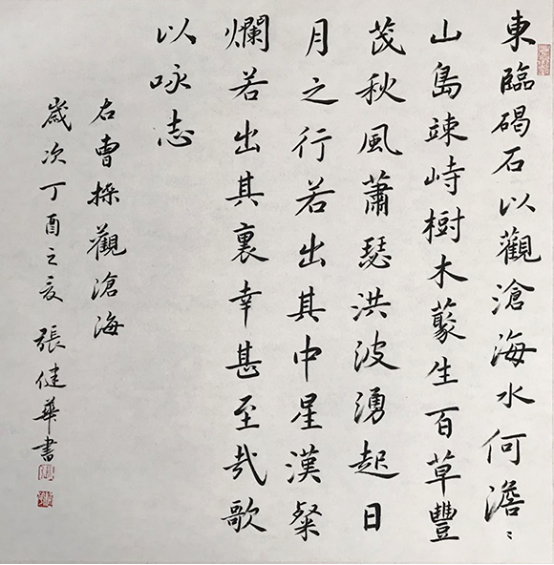 東臨碣石以觀滄海水何澹〻
山島竦峙樹木藂生百草豐
茂秋風蕭瑟洪波湧起日
月之行若出其中星漢粲
爛若出其裏幸甚至哉歌
以咏志
右曹操觀滄海
歲次丁酉之夏張健華書